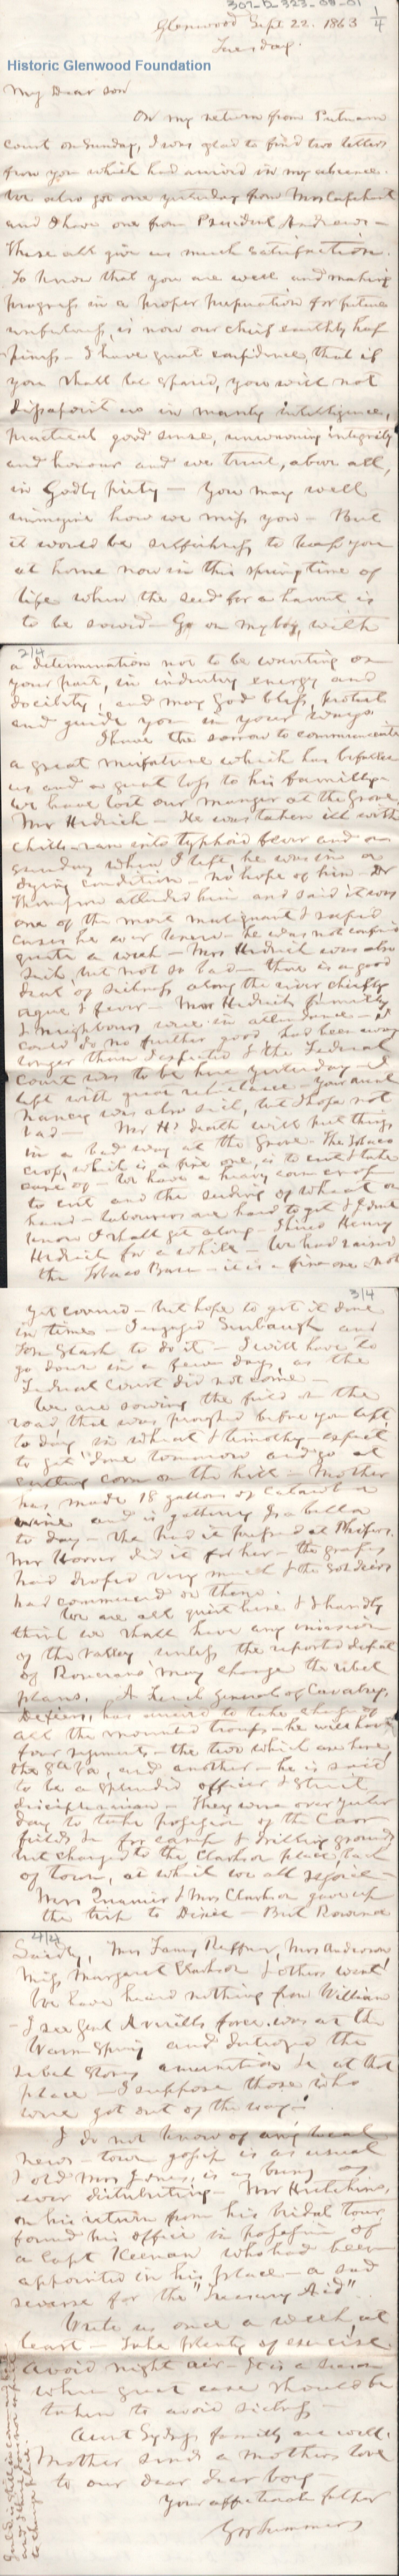 307-B-323-08-01
1/4
Glenwood Sept. 22. 1863
Tuesday.
Historic Glenwood Foundation
My Dear son
On my return from Putnam
court on Sunday, I was glad to find two letters
from you which had arrived in my absence.
We also got one yesterday from Mrs
and I have one from President Andrews -
These all give us much satisfaction.
To know that you are well and making
progress in a proper preparation for future
usefulness, is now our chief earthly hap
piness - I have great confidence, that if
you shall be spared, you will not
disappoint us in manly intelligence,
practical good sense, unswerving integrity
and honour and we trust, above all,
in Godly piety - You may well
immagine how we miss you - But
it would be selfishness to keep you
at home now in this spring time of
life when the seed for a harvest is
to be sowed - Go on my boy, with
2/4
a determination not to be wanting on
your part, in industry energy and
docility, and may God bless, protect
and guide you in your ways.
I have the sorrow to communicate
a great misfortune which has befallen
us and a great loss to his family -
We have lost our manager at the Grove
Mr Hedrick - He was taken ill with
chills - ran into typhoid fever and on
Sunday when I left, he was in a
dying condition - no hope of him - Dr
Thompson attended him and said it was
one of the most malignant & rapid
cases he ever knew - he was not confined
quite a week - Mrs Hedrick was also
sick, but not so bad - there is a good
deal of sickness along the river chiefly
ague & fever - Mr Hedrick's family
& neighbours were in attendance - I
could do no further good, had been away
longer than I expected & the Federal
Court was to be here yesterday - I
left with great reluctance - your aunt
Nancy was also sick, but I hope not
bad - Mr H's death will put things
in a bad way at the Grove - The Tobacco
crop, which is a fine one, is to cut & take
care of - We have a heavy corn crop
to cut and the seeding of wheat on
hand - labourers are hard to get & I dont
know how I shall get along - I hired Henry
Hedrick for a while - We had raised
the Tobacco Barn - it is a fine one - not
3/4
yet covered - but hope to get it done
in time - I engaged Sinbaugh and
Tom Slash to do it - I will have to
go down in a few days, as the
Federal Court did not come -
We are sowing the field on the
road that was ploughed before you left,
to day in wheat & timothy - expect
to get done tomorrow and go at
cutting corn on the hill - Mother
has made 18 gallons of Catawba
wine and is gathering
to day - She had it pressed at
Mr did it for her - the grapes
had dropped very much & the soldiers
had commenced on them.
We are all quiet here & I hardly
think we shall have any invasion
of the valley unless the reported defeat
of Rosecrans may change the rebel
plans. A French general of Cavalry,
has arrived to take charge of
all the mounted troops - he will have
four regiments - the two which are here,
the 8th Va, and another - he is said
to be a splendid officer & strict
disciplinarian - They were over yester
day to take possession of the Carr
fields for camp & drilling ground
but changed to the Clarkson place, back
of town, at which we all rejoice -
Mrs Quarrier & Mrs Clarkson gave up
the trip to Dixie - But Rowena
4/4
Mrs Fanny Ruffner, Mrs Anderson
Miss Margaret Clarkson & others went
We have heard nothing from William
- I see Genl Averills force was at the
Warm Spring and destroyed the
rebel stores amunition &c at that
place - I suppose those who
were got out of the way -
I do not know of any local
news - town gossip is as usual
& old Mrs Jones, is as busy as
ever distributing - Mr Hutchins,
on his return from his bridal tour
found his office in possession of
a Capt Keenan who had been
appointed in his place - a sad
reverse for the "Treasury Aid".
Write us once a week, at
least - Take plenty of exercise.
Avoid night air - It is a season
when great care should be
taken to avoid sickness -
Aunt Sydneys family are well.
Mother sends a mothers love
to our dear dear boy -
Your affectionate father
GW Summers
is still in command here
to change place